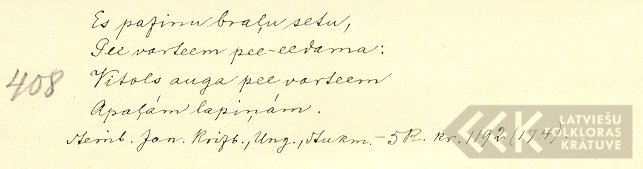 Es paſinu braļu setu,
Pee varteem pee-eedama:
408
Vitols auga pee varteem
Apaļám lapiņám.
Jan. Krizb., Ung., Stukm. – 5R. kr. 1192 (174).
LATVIEŠU
FOLKLORAS
KRĀTUVE